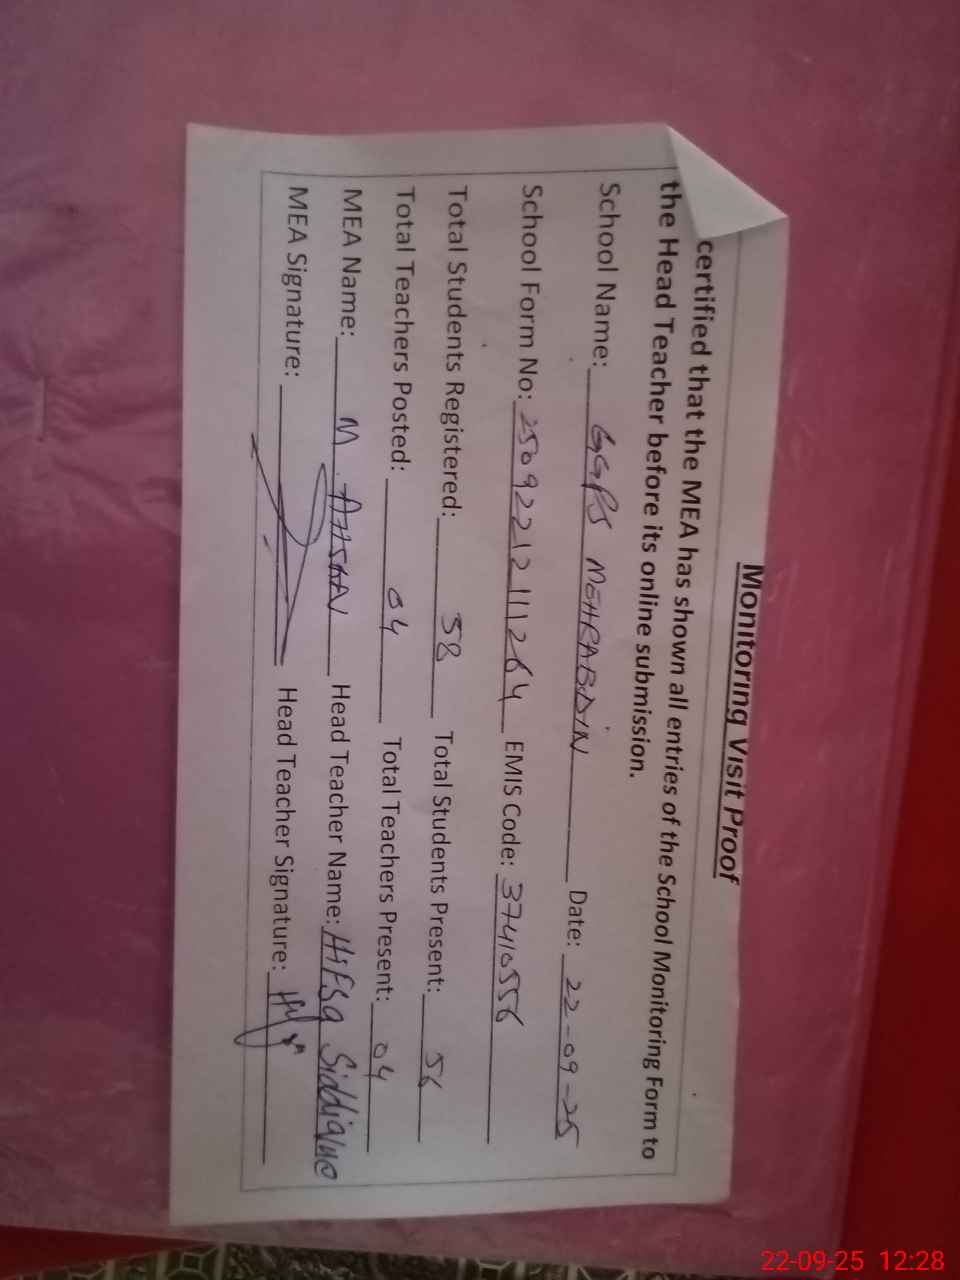 Monitoring Visit Proof
certified that the MEA has shown all entries of the School Monitoring Form to
the Head Teacher before its online submission.
School Name: GGPS MEHRABDIN Date: 22-09-25
School Form No: 25092212111264 EMIS Code: 37410556
Total Students Registered: 58 Total Students Present: 56
Total Teachers Posted: 04 Total Teachers Present: 04
MEA Name: M. AHSAN Head Teacher Name: Hifsa Siddique
MEA Signature: Head Teacher Signature:
22-09-25 12:28